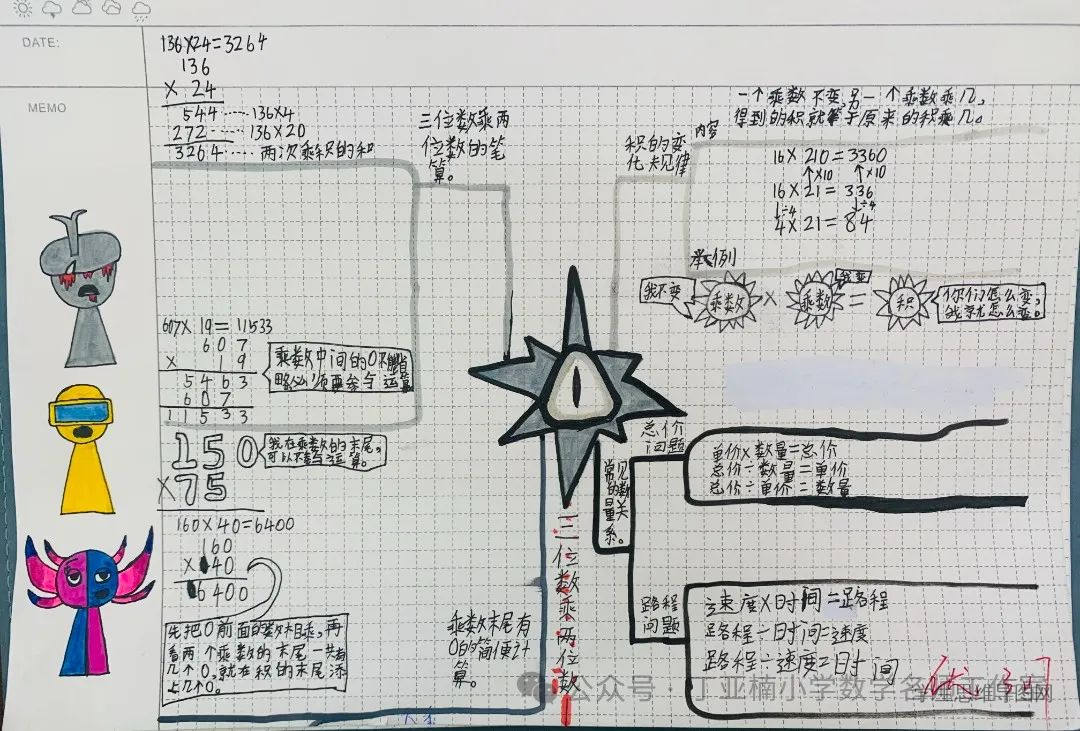 DATE:
MEMO
136×24=3264
136
× 24
544 ····· 136×4
272 ····· 136×20
3264 ····· 两次乘积的和
三位数乘两
位数的笔
算。
607×19=11533
607
× 19
5463
607
11533
乘数中间的0不能省
略,必须要参与运算。
150
×75
我在乘数的末尾,
可以不参与运算。
160×40=6400
160
×40
6400
先把0前面的数相乘,再
看两个乘数的末尾一共有
几个0,就在积的末尾添
上几个0。
乘数末尾有
0的简便计
算。
三位数乘两位数
积的变
化规律
内容
一个乘数不变,另一个乘数乘几,
得到的积就等于原来的积乘几。
16×210=3360
↑×10 ↑×10
16×21=336
↓÷4 ↓÷4
4×21=84
举例
我不变
乘数
×
乘数
我变
=
积
你们怎么变,
我就怎么变。
常见
的数
量关
系。
总价
问题
单价×数量=总价
总价÷数量=单价
总价÷单价=数量
路程
问题
速度×时间=路程
路程÷时间=速度
路程÷速度=时间
公众号·丁亚楠小学数学名